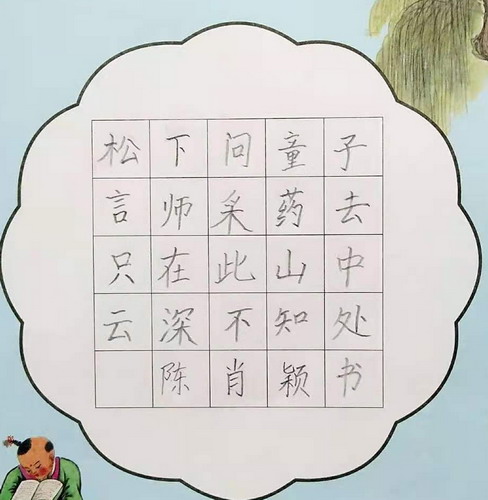 松下问童子
言师采药去
只在此山中
云深不知处
陈肖颖书